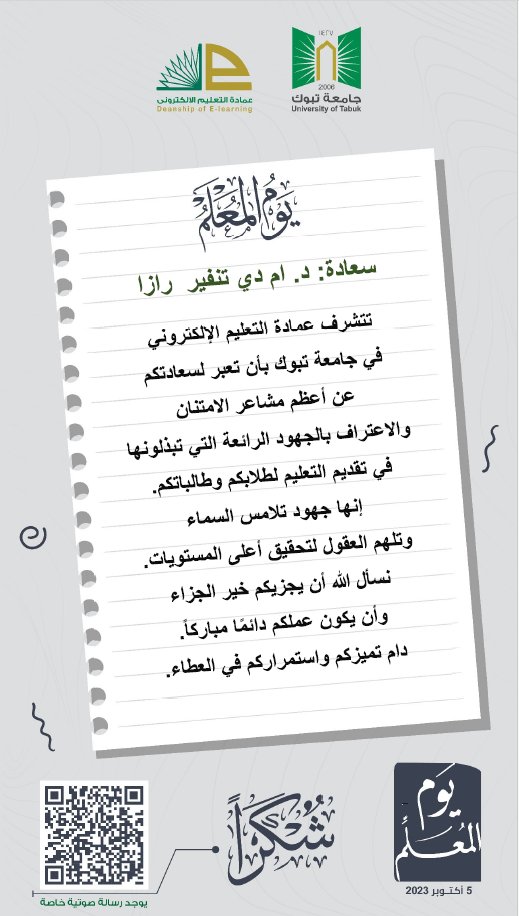 ١٤٢٧
2006
جامعة تبوك
University of Tabuk
عمادة التعليم الالكتروني
Deanship of E-learning
يَوْمُ المُعَلِّم
سعادة: د. ام دي تنفير رازا
تتشرف عمادة التعليم الإلكتروني
في جامعة تبوك بأن تعبر لسعادتكم
عن أعظم مشاعر الامتنان
والاعتراف بالجهود الرائعة التي تبذلونها
في تقديم التعليم لطلابكم وطالباتكم.
إنها جهود تلامس السماء
وتلهم العقول لتحقيق أعلى المستويات.
نسأل الله أن يجزيكم خير الجزاء
وأن يكون عملكم دائمًا مباركاً.
دام تميزكم واستمراركم في العطاء.
يَوْم
المُعَلِّم
5 أكتوبر 2023
شُكْرًا
يوجد رسالة صوتية خاصة